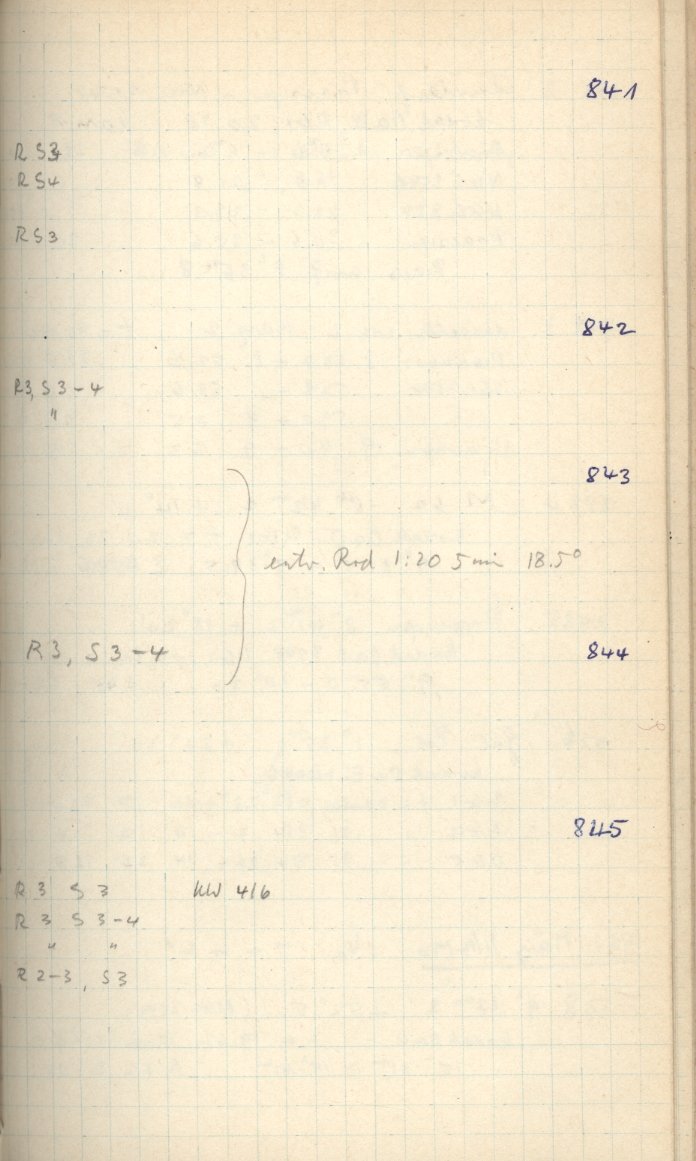 841
R S3
R S4
R S3
842
R3, S3-4
"
843
entw. Rod 1:20 5 min 18.5°
R3, S3-4 844
845
R 3 S 3 KW 4/6
R 3 S 3-4
" "
R 2-3, S3